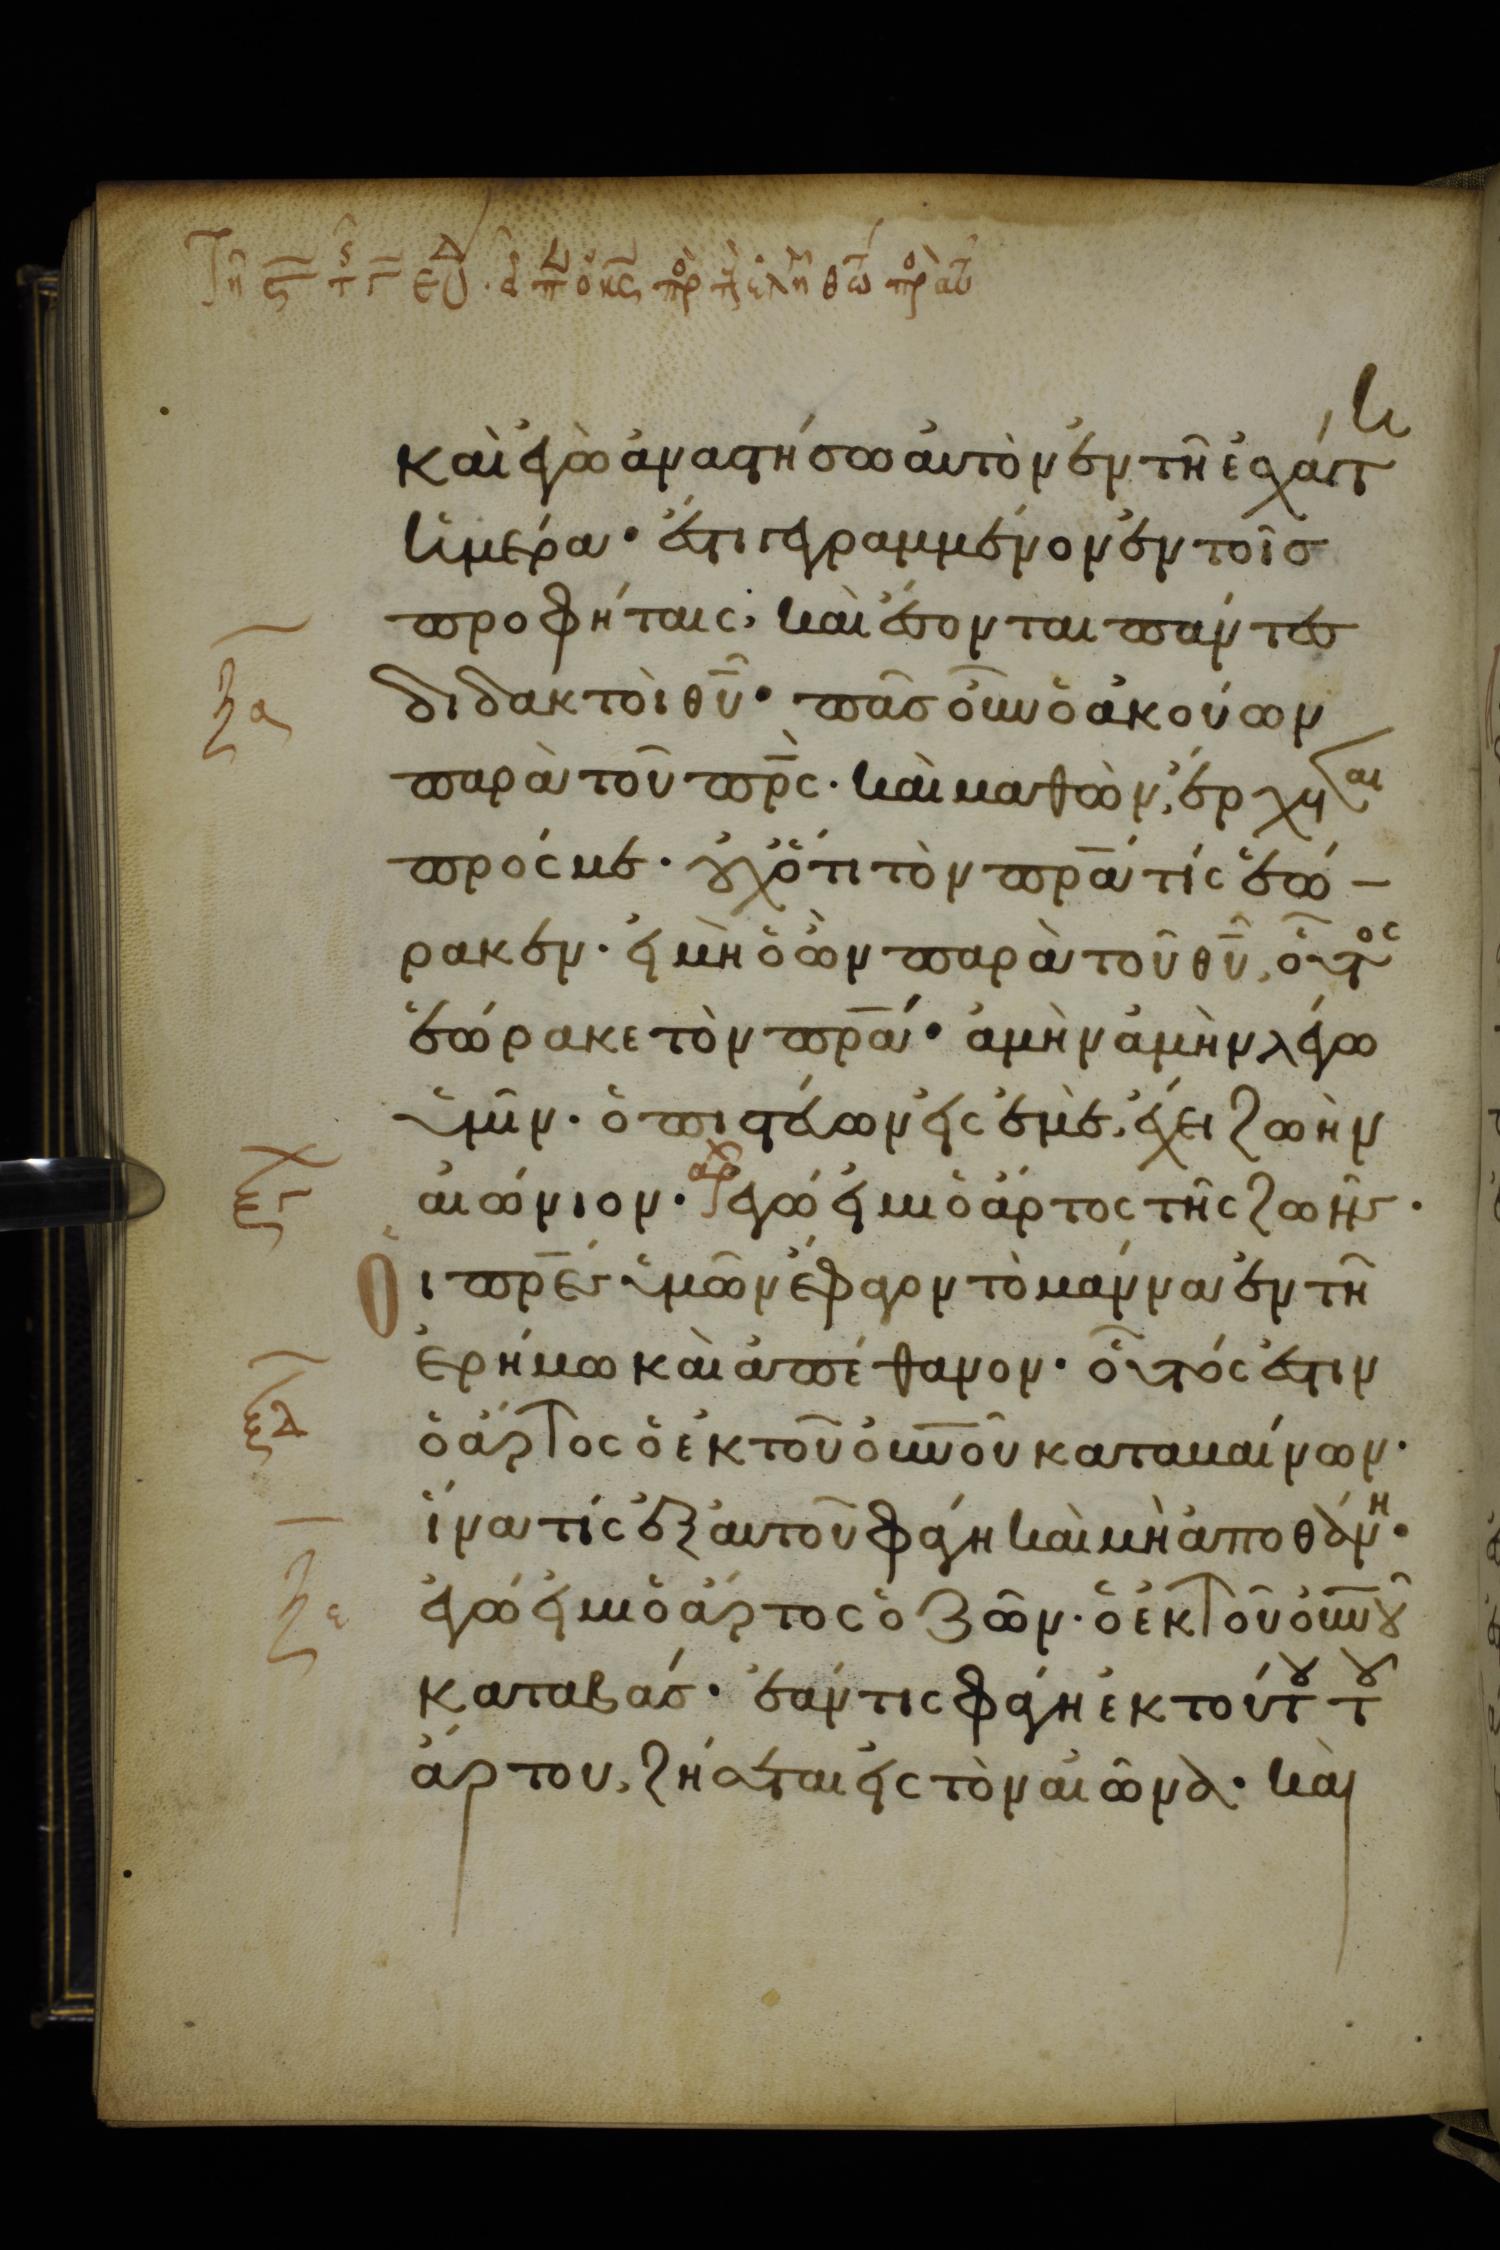 Τῆ ϛ τῆς γ ἑβδ. εἶπεν ὁ κς πρὸς τοὺς ἐληλυθότας πρὸς αὐτὸν
καὶ ἐγὼ ἀναστήσω αὐτὸν ἐν τῆ ἐσχάτη
ἡμέρα· ἔστι γεγραμμένον ἐν τοῖσ
προφήταις· καὶ ἔσονται πάντες
ξα
διδακτοὶ θῦ· πᾶσ οὖν ὁ ἀκούων
παρὰ τοῦ πρς· καὶ μαθὼν, ἔρχεται
πρός με· οὐχ ὅτι τὸν πρα τίς ἑώ-
ρακεν· εἰ μὴ ὁ ὢν παρὰ τοῦ θῦ, οὗτος
ἑώρακε τὸν πρα· ἀμὴν ἀμὴν λέγω
ὑμῖν· ὁ πιστεύων εἰς ἐμὲ, ἔχει ζωὴν
ξγ
ἀρχ
αἰώνιον· ἐγώ εἰμι ὁ ἄρτος τῆς ζωῆς·
Οἱ πρες ὑμῶν ἔφαγον τὸ μάννα ἐν τῆ
ἐρήμω καὶ ἀπέθανον· οὗτός ἐστιν
ξδ
ὁ ἄρτος ὁ ἐκ τοῦ οὐνοῦ καταβαίνων·
ἵνα τίς ἐξ αὐτοῦ φάγη καὶ μὴ ἀποθάνη·
ξε
ἐγώ εἰμι ὁ ἄρτος ὁ ζῶν· ὁ ἐκ τοῦ οὐνοῦ
καταβάσ· ἐάν τις φάγη ἐκ τούτου τοῦ
ἄρτου, ζήσεται εἰς τὸν αἰῶνα· καὶ